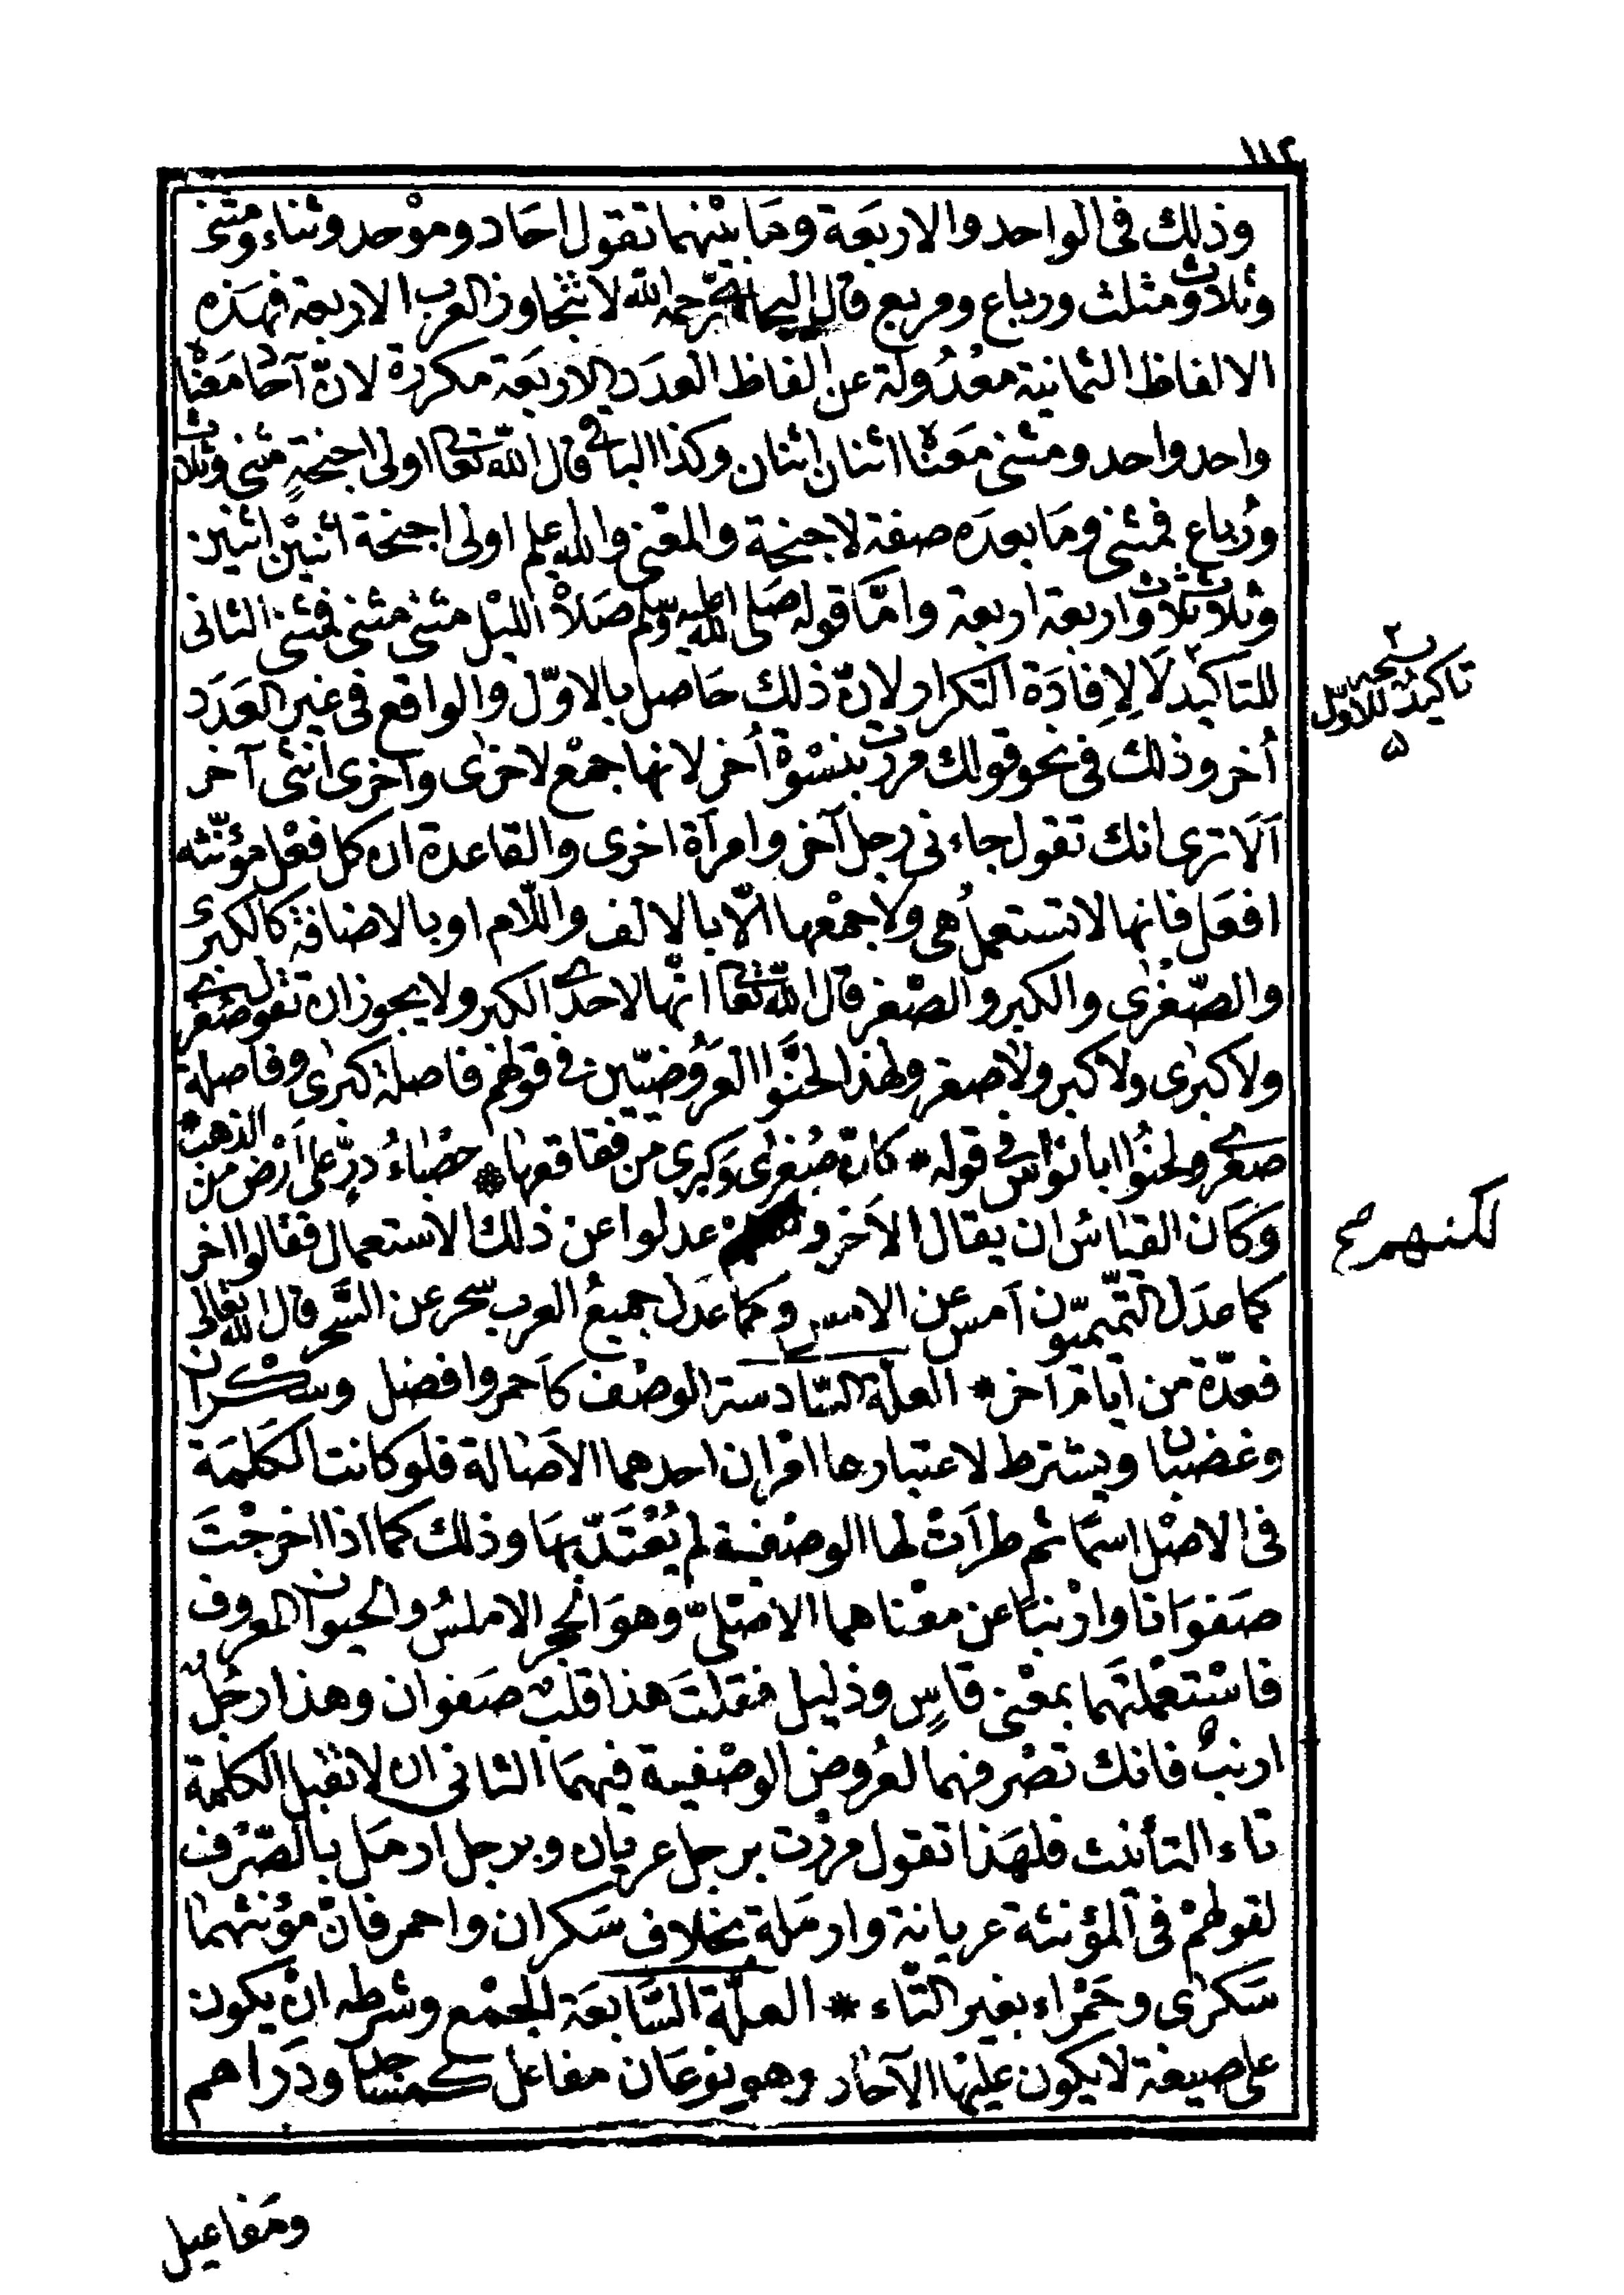 ١١٢
وذلك فى الواحد والاربعة وما بينهما تقول احاد وموحد وثناء ومثنى
وثلاث ومثلث ورباع ومربع قال رحمه الله لا تتجاوز العرب الاربعة فهذه
الالفاظ الثمانية معدولة عن الفاظ العدد الاربعة مكررة لانّ آحاد معناه
واحد واحد ومثنى معناه اثنان اثنان وكذا الباقى قال الله تعالى اولى اجنحةٍ مثنى وثلاث
ورُباع فمثنى وما بعده صفة لاجنحة والمعنى والله اعلم اولى اجنحة اثنين اثنين
وثلاث ثلاث واربعة اربعة وامّا قوله صلى الله عليه وسلم صلاة الليل مثنى مثنى فمثنى الثانى
للتاكيد لا لِإفادة التكرار لانّ ذلك حاصل بالاوّل والواقع فى غير العدد
تاكيدٌ للاوّل
أُخر وذلك فى نحو قولك مررت بنسوة أُخر لانها جمع لاخرى واخرى انثى آخر
اَلَا ترى انك تقول جاءنى رجل آخر وامرأة اخرى والقاعدة ان كل فعلى مؤنّثه
افعل فانها لا تستعمل هى ولا جمعها الّا بالالف واللّام او بالاضافة كالكبرى
والصّغرى والكبر والصّغر قال الله تعالى انّها لاحدى الكبر ولا يجوز ان تقول صغرى
ولا كبرى ولا كبر ولا صغر ولهذا لحنّوا العروضيّين فى قولهم فاصلة كبرى وفاصلة
صغرى ولحنّوا ابا نواس فى قوله * كانّ صغرى وكبرى من فقاقعها * حصباءُ درٍّ على أرض من الذهب
وكان القياس ان يقال الاُخر و عدلوا عن ذلك الاستعمال فقالوا اخر
لكنهم صح
كما عدل التميميّون اَمس عن الامس وكما عدل جميعُ العرب سحر عن السَّحر قال الله تعالى
فعدّة من ايام اُخر * العلّة السّادسة الوصف كاَحمر وافضل وسكران
وغضبان ويشترط لاعتبارها امران احدهما الاَصالة فلو كانت الكلمة
فى الاصل اسما ثم طراَت لها الوصفية لم يُعْتَدّ بها وذلك كما اذا اخرجتَ
صفوانا وارنبا عن معناهما الاصلىّ وهو الحجر الاملسُ والحيوان المعروف
فاستعملتهما بمعنى قاسٍ وذليل فقلتَ هذا قلبٌ صفوان وهذا رجلٌ
ارنبٌ فانك تصرفهما لعُروض الوصفية فيهما الثانى ان لا تقبل الكلمة
تاء التأنيث فلهذا تقول مررت برجل عريان وبرجل ارمل بالصّرف
لقولهم فى المؤنثة عريانة وارملة بخلاف سكران واحمر فانّ مؤنثهما
سكرى وحمراء بغير التّاء * العلّة السّابعة الجمع وشرطه ان يكون
على صيغة لا يكون عليها الآحاد وهو نوعان مفاعل كمساجد ودراهم
ومفاعيل